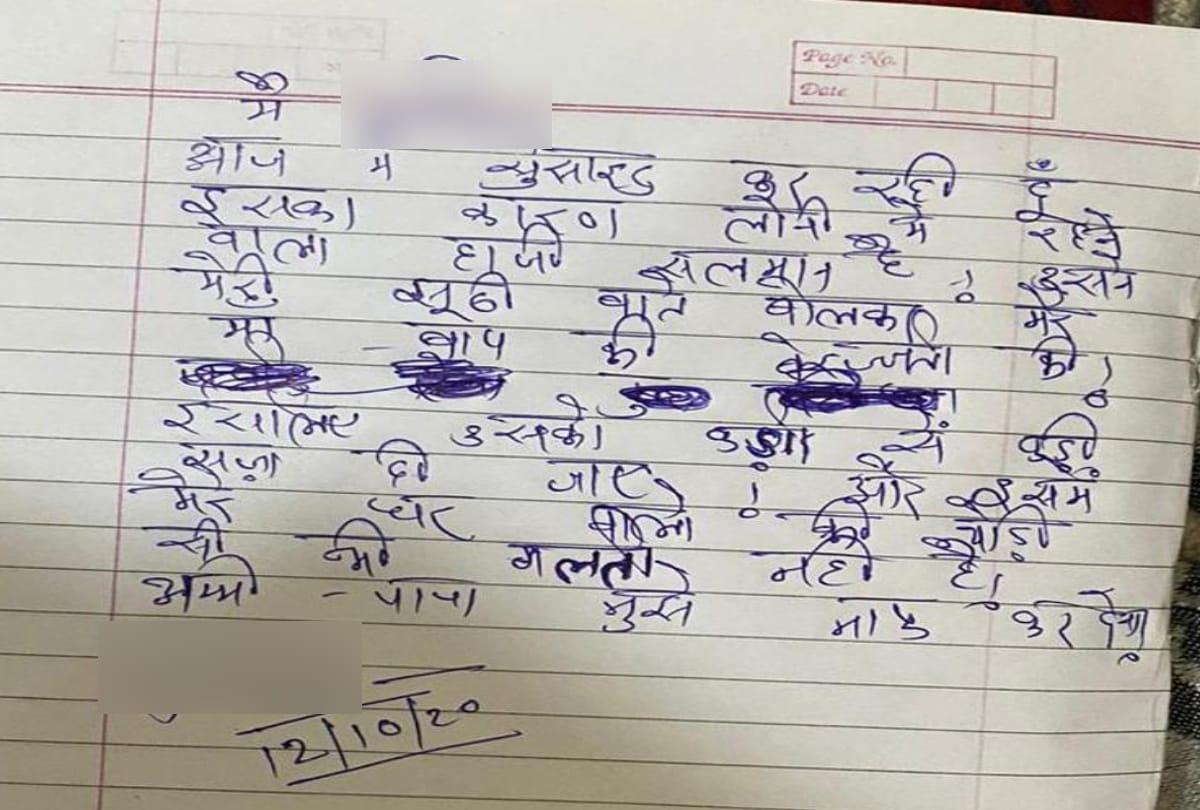 Page No.
Date
मै
आज म सुसाइड कर रही हूँ
इसका कारण लोनी मे रहने
वाला हाजी सलमान है ! उसने
मेरी झूठी बात बोलकर मेरे
माँ - बाप की बेइज्जती की !
इसलिए उसको कड़ी से कड़ी
सज़ा दी जाए ! और इसमे
मेरे घर वालो की थोड़ी
सी भी गलती नही है!
अम्मी - पापा मुझे माफ कर देना!
12/10/20